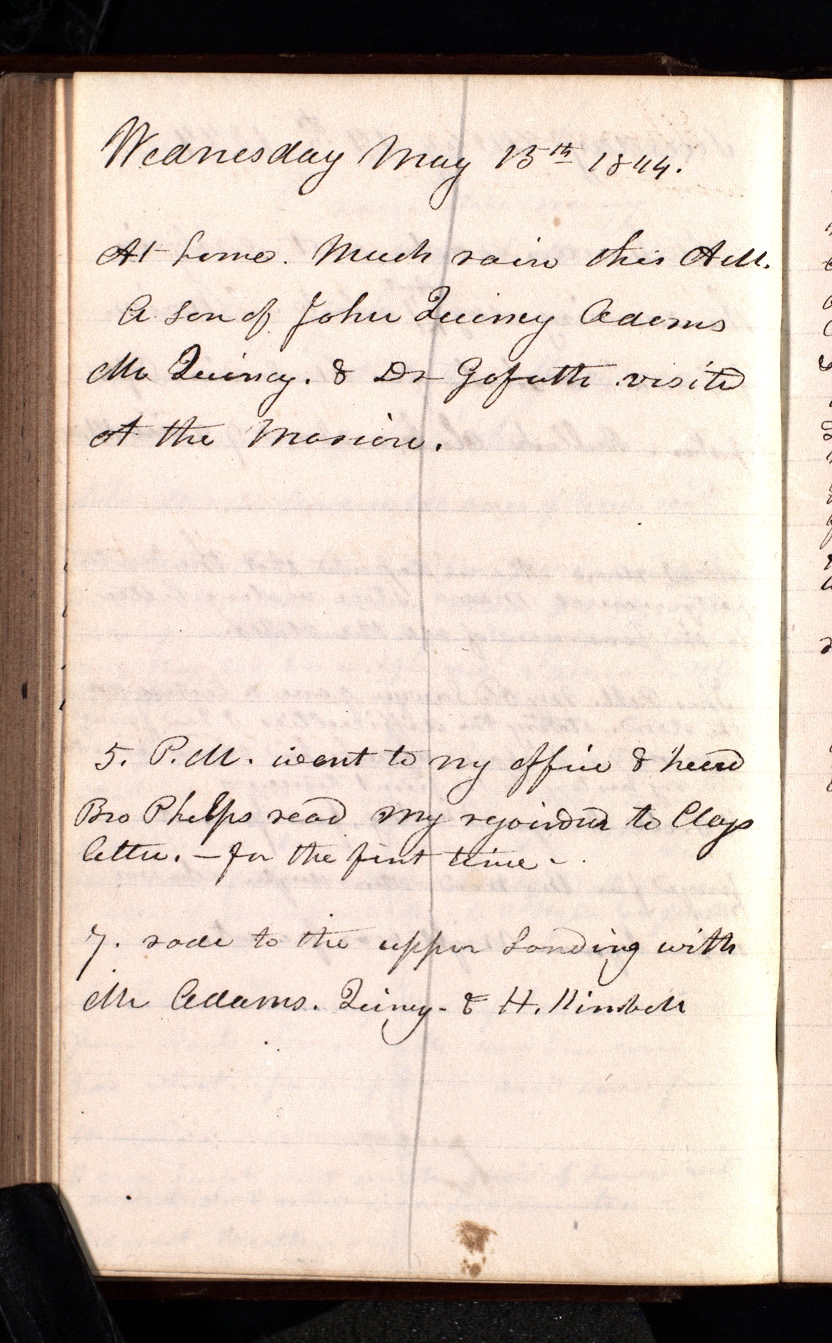 Wednesday May 15th 1844.
At home. Much rain this A.M.
A Son of John Quincy Adams
Mr Quincy. & Dr Gofoth visited
At the Mansion.
5. P.M. went to my office & heard
Bro Phelps read my rejoinder to Clays
letter. — for the first time -
7. rode to the upper Landing with
Mr Adams. Quincy. & H. Kimball